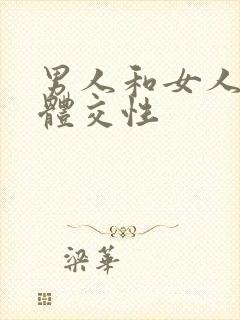 男人和女人
體交性
梁華